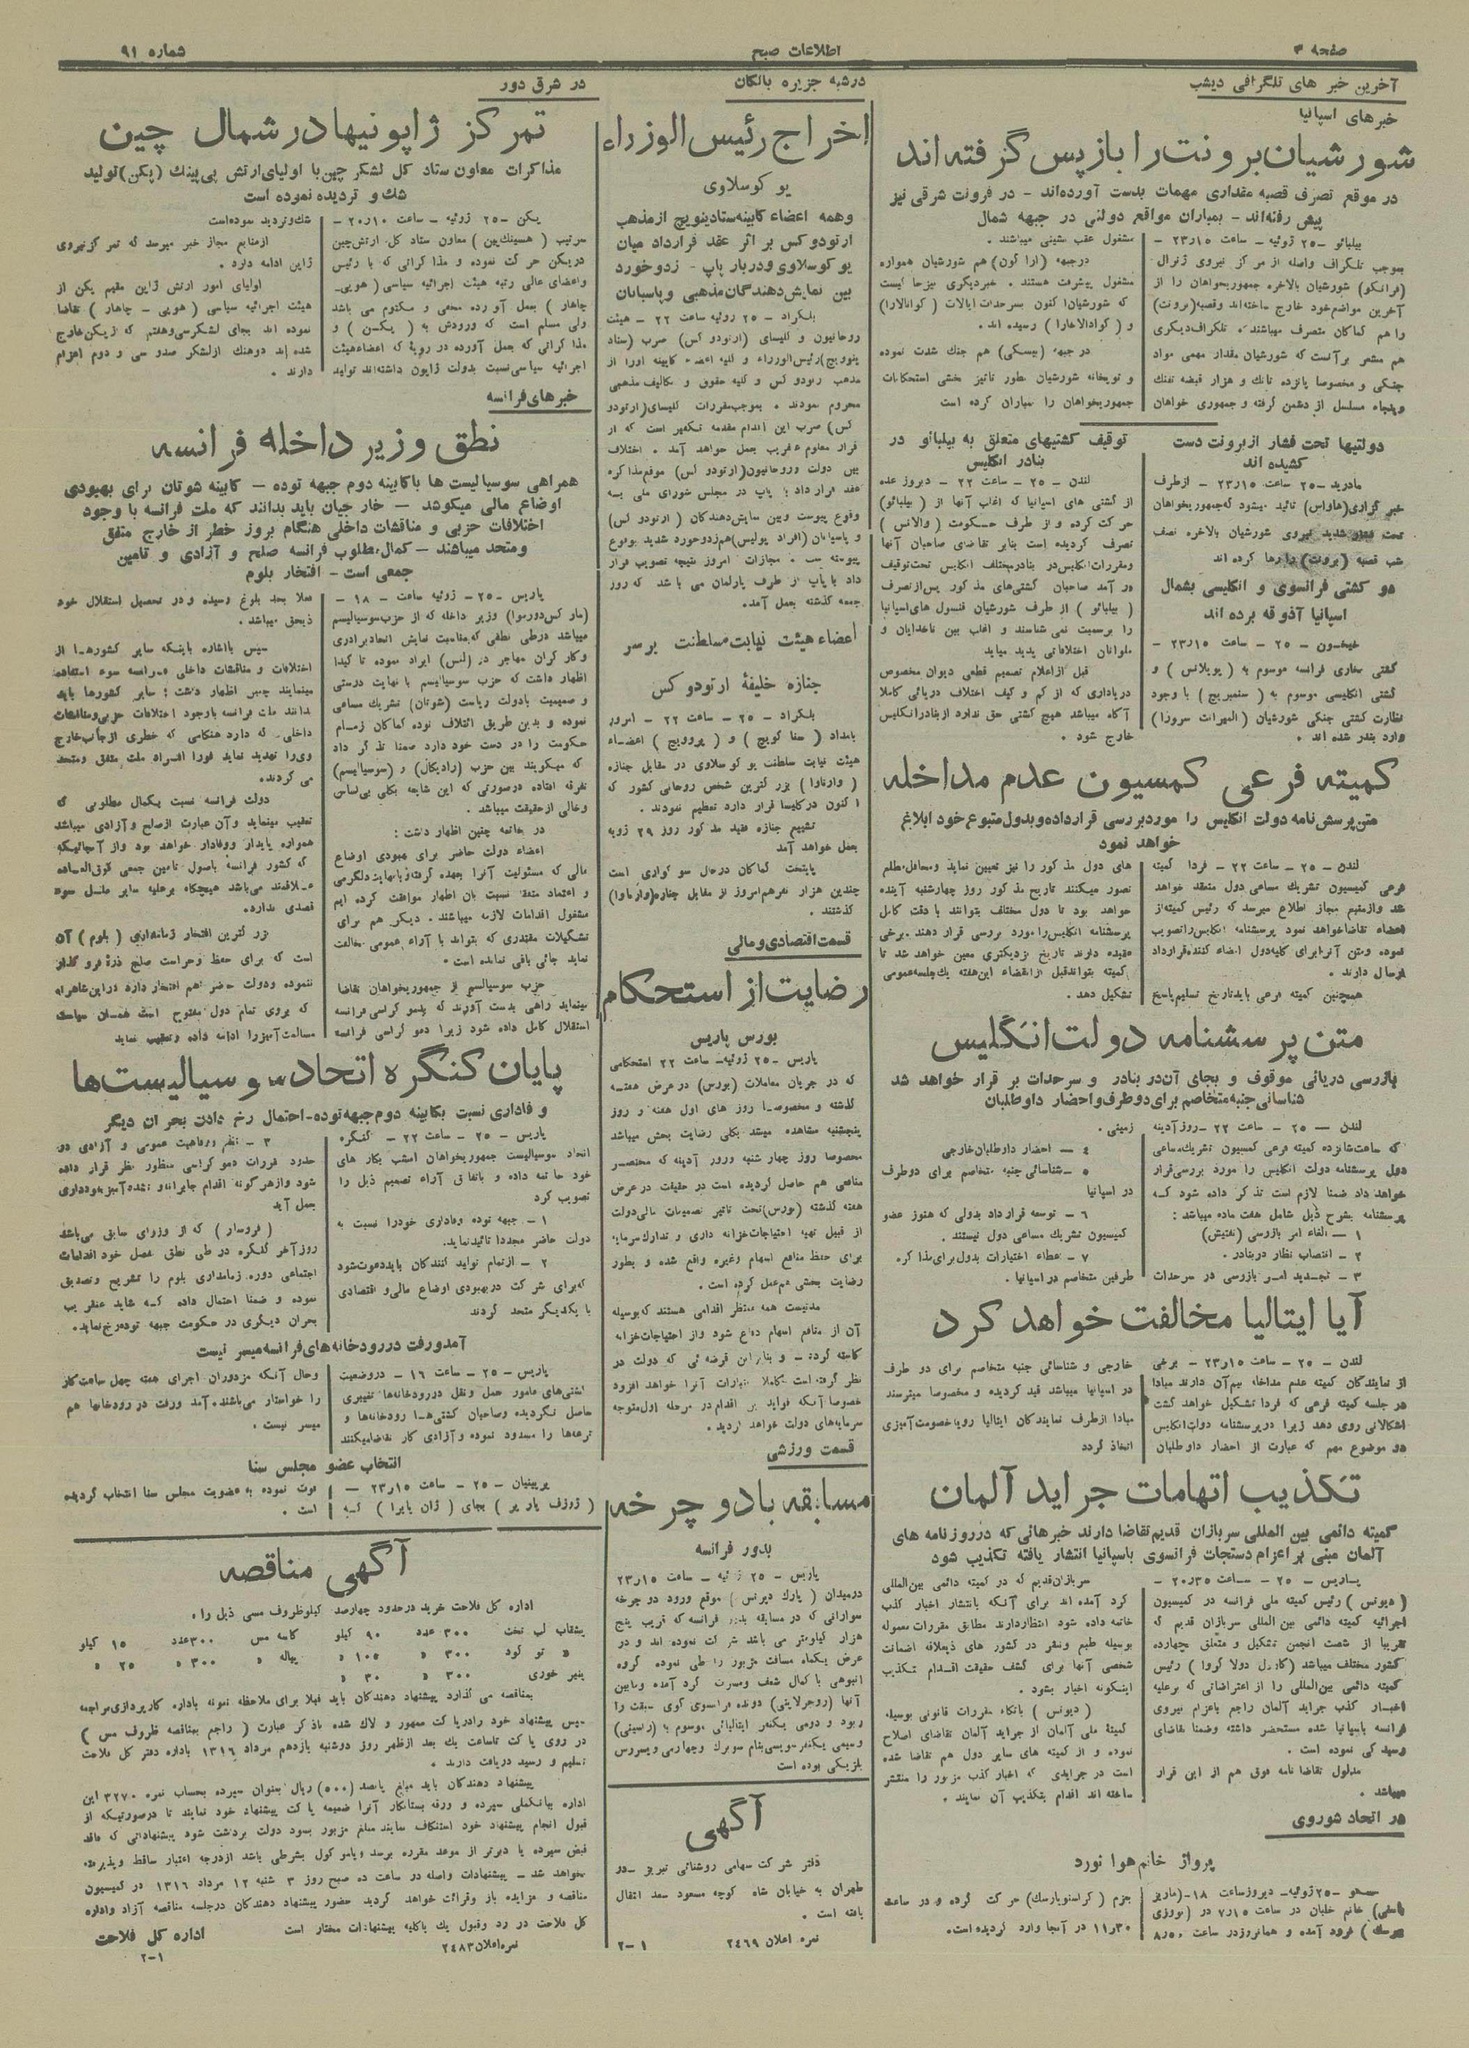 صفحه ۳
اطلاعات صبح
شماره ۹۱
آخرین خبر های تلگرافی دیشب
خبرهای اسپانیا
شورشیان برونت را باز پس گرفته اند
در موقع تصرف قصبه مقداری مهمات بدست آورده‌اند - در فرونت شرقی نیز
پیش رفته‌اند - بمباران مواقع دولتی در جبهه شمال
بیلبائو - ۲۵ ژوئیه - ساعت ۲۳ر۱۵ -
بموجب تلگراف واصله از مرکز نیروی ژنرال
(فرانکو) شورشیان بالاخره جمهوریخواهان را از
آخرین مواضع خود خارج ساخته‌اند وقصبه(برونت)
را هم کماکان متصرف میباشند. تلگراف دیگری
هم مشعر بر آنست که شورشیان مقدار مهمی مواد
جنگی و مخصوصا پانزده تانک و هزار قبضه تفنگ
وپنجاه مسلسل از دشمن گرفته و جمهوری خواهان
مشغول عقب نشینی میباشند.
درجبهه (اراگون) هم شورشیان همواره
مشغول پیشرفت هستند. خبردیگری نیز حاکیست
که شورشیان اکنون بسرحدات ایالات (کوادالارا)
و (کوادالاخارا) رسیده اند.
در جبهه (بیسکی) هم جنگ شدت نموده
و توپخانه شورشیان بطور تاثیر بخشی استحکامات
جمهوریخواهان را بمباران کرده است
دولتیها تحت فشار از برونت دست
کشیده اند
مادرید - ۲۵ ساعت ۲۳ر۱۵ - ازطرف
خبر گزاری(هاواس) تائید میشود که جمهوریخواهان
تحت فشار شدید نیروی شورشیان بالاخره نصف
شب قصبه (برونت) را رها کرده اند
دو کشتی فرانسوی و انگلیسی بشمال
اسپانیا آذوقه برده اند
خیخون - ۲۵ - ساعت ۲۳ر۱۵ -
کشتی بخاری فرانسه موسوم به (پویلانس) و
کشتی انگلیسی موسوم به (ستمبریج) با وجود
نظارت کشتی جنگی شورشیان (المیرانت سروزا)
وارد بندر شده اند.
توقیف کشتیهای متعلق به بیلبائو در
بنادر انگلیس
لندن - ۲۵ - ساعت ۲۲ - دیروز عده
از کشتی های اسپانیا که اغلب آنها از (بیلبائو)
حرکت کرده و از طرف حکومت (والانس)
تصرف گردیده است بنابر تقاضای صاحبان آنها
ومقررات انگلیس در بنادر مختلف انگلیس تحت توقیف
در آمد صاحبان کشتی‌های مذکور پس از تصرف
(بیلبائو) از طرف شورشیان قنسول های اسپانیا
را برسمیت نمی شناسند و اغلب بین ناخدایان و
ملوانان اختلافاتی پدید میاید
قبل از اعلام تصمیم قطعی دیوان مخصوص
دریاداری که از کم و کیف اختلاف دریائی کاملا
آگاه میباشد هیچ کشتی حق ندارد از بنادر انگلیس
خارج شود.
کمیته فرعی کمسیون عدم مداخله
متن پرسش نامه دولت انگلیس را مورد بررسی قرارداده و بدول متبوع خود ابلاغ
خواهد نمود
لندن - ۲۵ - ساعت ۲۲ - فردا کمیته
فرعی کمیسیون تشریک مساعی دول منعقد خواهد
شد وازمنبع مجاز اطلاع میرسد که رئیس کمیته از
اعضاء تقاضا خواهد نمود پرسشنامه انگلیس را تصویب
نموده ومتن آنرا برای کلیه دول امضاء کننده قرارداد
ارسال دارند.
همچنین کمیته فرعی باید تاریخ تسلیم پاسخ
های دول مذکور را نیز تعیین نماید ومحافل مطلع
تصور میکنند تاریخ مذکور روز چهارشنبه آینده
خواهد بود تا دول مختلف بتوانند با دقت کامل
پرسشنامه انگلیس را مورد بررسی قرار دهند. برخی
عقیده دارند تاریخ نزدیکتری معین خواهد شد تا
کمیته بتواند قبل از انقضاء این هفته یک جلسه عمومی
تشکیل دهد.
متن پرسشنامه دولت انگلیس
بازرسی دریائی موقوف و بجای آن در بنادر و سرحدات بر قرار خواهد شد
شناسائی جنبه متخاصم برای دو طرف و احضار داوطلبان
لندن - ۲۵ - ساعت ۲۲ - روز آدینه
که ساعت شانزده کمیته فرعی کمسیون تشریک مساعی
دول پرسشنامه دولت انگلیس را مورد بررسی قرار
خواهد داد ضمنا لازم است تذکر داده شود که
پرسشنامه بشرح ذیل شامل هفت ماده میباشد:
۱ - الغاء امر بازرسی (تفتیش)
۲ - انتصاب نظار در بنادر.
۳ - تجدید امر بازرسی در سرحدات
زمینی.
٤ - احضار داوطلبان خارجی
۵ - شناسائی جنبه متخاصم برای دو طرف
در اسپانیا
٦ - توسعه قرارداد بدولی که هنوز عضو
کمیسیون تشریک مساعی دول نیستند.
۷ - اعطاء اختیارات بدول برای مذاکره
طرفین متخاصم در اسپانیا.
آیا ایتالیا مخالفت خواهد کرد
لندن - ۲۵ - ساعت ۲۳ر۱۵ - برخی
از نمایندگان کمیته عدم مداخله بیم آن دارند مبادا
در جلسه کمیته فرعی که فردا تشکیل خواهد گشت
اشکالاتی روی دهد زیرا در پرسشنامه دولت انگلیس
دو موضوع مهم که عبارت از احضار داوطلبان
خارجی و شناسائی جنبه متخاصم برای دو طرف
در اسپانیا میباشد قید گردیده و مخصوصا میترسند
مبادا از طرف نمایندگان ایتالیا رویه خصومت آمیزی
اتخاذ گردد
تکذیب اتهامات جراید آلمان
کمیته دائمی بین المللی سربازان قدیم تقاضا دارند خبرهائی که در روزنامه های
آلمان مبنی بر اعزام دستجات فرانسوی باسپانیا انتشار یافته تکذیب شود
پاریس - ۲۵ - ساعت ۲۰ر۳۵ -
(دیونس) رئیس کمیته ملی فرانسه در کمیسیون
اجرائیه کمیته دائمی بین المللی سربازان قدیم که
تقریبا از شصت انجمن تشکیل و متعلق بچهارده
کشور مختلف میباشد (کارل دولا کروا) رئیس
کمیته دائمی بین‌المللی را از اعتراضاتی که برعلیه
اخبار کذب جراید آلمان راجع باعزام نیروی
فرانسه باسپانیا شده مستحضر داشته وضمنا تقاضای
رسید کی نموده است.
مدلول تقاضا نامه فوق هم از این قرار
میباشد.
سربازان قدیم که در کمیته دائمی بین‌المللی
گرد آمده اند برای آنکه بانتشار اخبار کذب
خاتمه داده شود انتظار دارند مطابق مقررات معموله
بوسیله طبع ونشر در کشور های ذیعلاقه اضمانت
شخصی آنها برای کشف حقیقت اقدام بتکذیب
اینگونه اخبار بشود.
(دیونس) باتکاء مقررات قانونی بوسیله
کمیته ملی آلمان از جراید آلمان تقاضای اصلاح
نموده و از کمیته های سایر دول هم تقاضا شده
است در جرایدی که اخبار کذب مزبور را منتشر
ساخته اند اقدام بتکذیب آن نمایند.
در اتحاد شوروی
پرواز خانم هوا نورد
مسکو - ۲۵ ژوئیه - دیروز ساعت ۱۸ -
خانم خلبان در ساعت ۷ر۱۵ در
فرود آمده و همانروز در ساعت ۸ر۵۰
بعزم (کراسنویارسک) حرکت کرده و در ساعت
۱۱ر۳۰ در آنجا وارد گردیده است.
درشبه جزیره بالکان
اخراج رئیس الوزراء
یوگوسلاوی
وهمه اعضاء کابینه ستادینویچ از مذهب
ارتودوکس بر اثر عقد قرارداد میان
یوگوسلاوی و دربار پاپ - زدو خورد
بین نمایش دهندگان مذهبی و پاسبانان
بلگراد - ۲۵ ژوئیه ساعت ۲۲ - هیئت
روحانیون و کلیسای (ارتودوکس) صرب (ستاد
ینوویچ) رئیس‌الوزراء و کلیه اعضاء کابینه اورا از
مذهب ارتودوکس و کلیه حقوق و تکالیف مذهبی
محروم نمودند. بموجب مقررات کلیسای (ارتودو
کس) صرب این اقدام مقدمه تکفیر است که از
قرار معلوم عنقریب بعمل خواهد آمد. اختلاف
بین دولت وروحانیون (ارتودوکس) موقع مذاکره
عقد قرارداد با پاپ در مجلس شورای ملی به
وقوع پیوست وبین نمایش دهندگان (ارتودوکس)
و پاسبانان (افراد پولیس) هم زدوخورد شدید بوقوع
پیوسته است. مجازات امروز نتیجه تصویب قرار
داد با پاپ از طرف پارلمان می باشد که روز
جمعه گذشته بعمل آمد.
أعضاء هیئت نیابت سلطنت بر سر
جنازه خلیفهٔ ارتودوکس
بلگراد - ۲۵ - ساعت ۲۲ - امروز
بامداد (ستانکویچ) و (پروویچ) اعضاء
هیئت نیابت سلطنت یوگوسلاوی در مقابل جنازه
(وارناوا) بزرگترین شخص روحانی کشور که
اکنون در کلیسا قرار دارد تعظیم نمودند.
تشییع جنازه فقید مذکور روز ۲۹ ژویه
بعمل خواهد آمد
پایتخت کماکان درحال سوگواری است
چندین هزار نفر هم امروز از مقابل جنازه (وارناوا)
گذشتند.
قسمت اقتصادی و مالی
رضایت از استحکام
بورس پاریس
پاریس - ۲۵ ژوئیه - ساعت ۲۲ استحکامی
که در جریان معاملات (بورس) در عرض هفته
گذشته و مخصوصا روز های اول هفته و روز
پنجشنبه مشاهده میشد بکلی رضایت بخش میباشد
مخصوصا روز چهار شنبه وروز آدینه که مختصر
منافعی هم حاصل گردیده است در حقیقت در عرض
هفته گذشته (بورس) تحت تاثیر تصمیمات مالی دولت
از قبیل تهیه احتیاجات خزانه داری و تدارک سرمایه
برای حفظ منافع اسهام وغیره واقع شده و بطور
رضایت بخشی هم عمل کرده است.
مدتیست همه منتظر اقدامی هستند که بوسیله
آن از منافع اسهام دفاع شود واز احتیاجات خزانه
کاسته گردد - و بنابر این قرضه ئی که دولت در
نظر گرفته است کاملا اعتبارات آنرا خواهد افزود
خصوصا آنکه فواید هر اقدام در مرحله اول متوجه
سرمایه‌های دولت خواهد گردید.
قسمت ورزشی
مسابقه با دو چرخه
بدور فرانسه
پاریس - ۲۵ ژوئیه - ساعت ۲۳ر۱۵
درمیدان (پارک دپرنس) موقع ورود دو چرخه
سوارانی که در مسابقه بدور فرانسه که قریب پنج
هزار کیلومتر می باشد شرکت نموده اند و در
عرض یکماه مسافت مزبور را طی نموده گروه
انبوهی با کمال شعف ومسرت گرد آمده ومابین
آنها (روجرلاپبی) دونده فرانسوی گوی سبقت را
ربود و دومی یکنفر ایتالیائی موسوم به (
وسیمی یکنفر سویسی بنام سوبرگ وچهارمی ویسرس
بلژیکی بوده است
آگهی
دفتر شرکت سهامی روشنائی تبریز - در
طهران به خیابان شاه کوچه مسعود سعد انتقال
یافته است.
نمره اعلان ۲٤٦۹
۲-۱
در شرق دور
تمرکز ژاپونیها در شمال چین
مذاکرات معاون ستاد کل لشکر چین با اولیای ارتش پی پینگ (پکن) تولید
شک و تردیده نموده است
پکن - ۲۵ ژوئیه - ساعت ۲۰ر۱۰ -
سرتیپ (هسینک‌پین) معاون ستاد کل ارتش چین
در پکن حرکت نموده و مذاکراتی که با رئیس
واعضای عالی رتبه هیئت اجرائیه سیاسی (هوپی -
چاهار) بعمل آورده مخفی و مکتوم می باشد
ولی مسلم است که ورودش به (پکن) و
مذاکراتی که بعمل آورده در رویهٔ که اعضاء هیئت
اجرائیه سیاسی نسبت بدولت ژاپون داشته‌اند تولید
شک و تردید نموده است
ازمنابع مجاز خبر میرسد که تمرکز نیروی
ژاپن ادامه دارد.
اولیای امور ارتش ژاپن مقیم پکن از
هیئت اجرائیه سیاسی (هوپی - چاهار) تقاضا
نموده اند بجای لشکر سی وهفتم که از پکن خارج
شده اند دوهنگ ازلشکر صدو سی و دوم اعزام
دارند.
خبرهای فرانسه
نطق وزیر داخله فرانسه
همراهی سوسیالیست ها باکابینه دوم جبهه توده - کابینه شوتان برای بهبودی
اوضاع مالی میکوشد - خارجیان باید بدانند که ملت فرانسه با وجود
اختلافات حزبی و مناقشات داخلی هنگام بروز خطر از خارج متفق
ومتحد میباشند - کمال مطلوب فرانسه صلح و آزادی و تامین
جمعی است - افتخار بلوم
پاریس - ۲۵ - ژوئیه ساعت - ۱۸ -
(مارکس دورموا) وزیر داخله که از حزب سوسیالیسم
میباشد درطی نطقی که بمناسبت نمایش اتحاد برادری
وکارگران مهاجر در (لنس) ایراد نموده تاکیدا
اظهار داشت که حزب سوسیالیسم با نهایت درستی
و صمیمیت با دولت ریاست (شوتان) تشریک مساعی
نموده و بدین طریق ائتلاف توده کماکان زمام
حکومت را در دست خود دارد ضمنا تذکر داد
که میگویند بین حزب (رادیکال) و (سوسیالیسم)
تفرقه افتاده درصورتی که این شایعه بکلی بی‌اساس
وخالی از حقیقت میباشد.
در خاتمه چنین اظهار داشت:
اعضاء دولت حاضر برای بهبودی اوضاع
مالی که مسئولیت آنرا بعهده گرفته و با نهایت دلگرمی
و اعتماد متفقا نسبت بان اظهار موافقت کرده ایم
مشغول اقدامات لازمه میباشند. دیگر هم برای
تشکیلات مقتدری که بتواند با آراء عمومی مخالفت
نماید جائی باقی نمانده است.
حزب سوسیالیسم از جمهوریخواهان تقاضا
مینماید راهی بدست آورند که بدمو کراسی فرانسه
استقلال کامل داده شود زیرا دمو کراسی فرانسه
فعلا بحد بلوغ رسیده و در تحصیل استقلال خود
ذیحق میباشد.
سپس با اشاره باینکه سایر کشورها از
اختلافات و مناقشات داخلی فرانسه سوء استفاده
مینمایند چنین اظهار داشت: سایر کشورها باید
بدانند ملت فرانسه با وجود اختلافات حزبی و مناقشات
داخلی که دارد هنگامی که خطری از جانب خارج
وی را تهدید نماید فورا افراد ملت متفق و متحد
می گردند.
دولت فرانسه نسبت بکمال مطلوبی که
تعقیب مینماید وآن عبارت ازصلح وآزادی میباشد
همواره پایدار ووفادار خواهد بود و از آنجائیکه
که کشور فرانسه باصول تامین جمعی فوق‌العاده
علاقمند می باشد هیچگاه برعلیه سایر ملل سوء
قصدی ندارد.
بزرگترین افتخار زمامداری (بلوم) آن
است که برای حفظ وحراست صلح ذرهٔ فروگذار
ننموده ودولت حاضر هم افتخار دارد در این شاهراه
که بروی تمام دول مفتوح است همان سیاست
مسالمت آمیز را ادامه داده وتعقیب نماید
پایان کنگره اتحاد سوسیالیست‌ها
وفاداری نسبت بکابینه دوم جبهه توده - احتمال رخ دادن بحران دیگر
پاریس - ۲۵ - ساعت ۲۲ - کنگره
اتحاد سوسیالیست جمهوریخواهان امشب بکار های
خود خاتمه داده و باتفاق آراء تصمیم ذیل را
تصویب کرد
۱ - جبهه توده وفاداری خودرا نسبت به
دولت حاضر مجددا تائید نماید.
۲ - ازتمام تولید کنندگان باید دعوت شود
که برای شرکت در بهبودی اوضاع مالی و اقتصادی
با یکدیگر متحد گردند
۳ - نظم و رفاهیت عمومی و آزادی در
حدود مقررات دموکراسی منظور نظر قرار داده
شود واز هرگونه اقدام جابرانه و تشدد آمیز خودداری
بعمل آید
(فروسار) که از وزرای سابق می باشد
روز آخر کنگره در طی نطق مفصل خود اقدامات
اجتماعی دوره زمامداری بلوم را تشریح وتصدیق
نموده و ضمنا احتمال داده که شاید عنقریب
بحران دیگری در حکومت جبهه توده رخ نماید.
آمدورفت در رودخانه های فرانسه میسر نیست
پاریس - ۲۵ - ساعت ۱٦ - در وضعیت
کشتی‌های مامور حمل و نقل در رودخانه‌ها تغییری
حاصل نگردیده وصاحبان کشتی‌ها رودخانه‌ها و
ترعه‌ها را مسدود نموده و آزادی کار تقاضا میکنند
وحال آنکه مزدوران اجرای هفته چهل ساعت کار
را خواستار می باشند. آمد ورفت در رودخانه‌ها هم
میسر نیست.
انتخاب عضو مجلس سنا
پرپینیان - ۲۵ - ساعت ۲۳ر۱۵ -
(ژوزف پاریر) بجای (ژان پایرا) که
فوت نموده به عضویت مجلس سنا انتخاب گردیده
است.
آگهی مناقصه
اداره کل فلاحت خرید درحدود چهارصد کیلوظروف مسی ذیل را:
بشقاب لب تخت ۳۰۰ عدد ۹۰ کیلو کاسه مس ۳۰۰ عدد ۱۵ کیلو
« تو گود ۳۰۰ « ۱۰۵ « پیاله « ۳۰۰ « ۲۵ «
پنیر خوری ۳۰۰ « ۳۰ «
بمناقصه می گذارد پیشنهاد دهندگان باید قبلا برای ملاحظه نمونه باداره کارپردازی مراجعه
سپس پیشنهاد خود را در پاکت ممهور و لاک شده با ذکر عبارت (راجع بمناقصه ظروف مس)
در روی پاکت تا ساعت یک بعد ازظهر روز دوشنبه یازدهم مرداد ۱۳۱٦ باداره دفتر کل فلاحت
تسلیم و رسید دریافت دارند.
پیشنهاد دهندگان باید مبلغ پانصد (۵۰۰) ریال بعنوان سپرده بحساب نمره ۳۲۷۰ این
اداره ببانک ملی سپرده و ورقه بستانکار آنرا ضمیمه پاکت پیشنهاد خود نمایند تا درصورتیکه از
قبول انجام پیشنهاد خود استنکاف نمایند مبلغ مزبور بسود دولت برداشت شود پیشنهاداتی که فاقد
قبض سپرده یا دیرتر از موعد مقرره برسد ویا موکول بشرطی باشد ازدرجه اعتبار ساقط وپذیرفته
نخواهد شد - پیشنهادات واصله در ساعت ده صبح روز ۳ شنبه ۱۲ مرداد ۱۳۱٦ در کمیسیون
مناقصه و مزایده باز وقرائت خواهد گردید حضور پیشنهاد دهندگان درجلسه مناقصه آزاد واداره
کل فلاحت در رد وقبول یک یا کلیه پیشنهادات مختار است
اداره کل فلاحت
نمره اعلان ۲٤۸۳
۲-۱